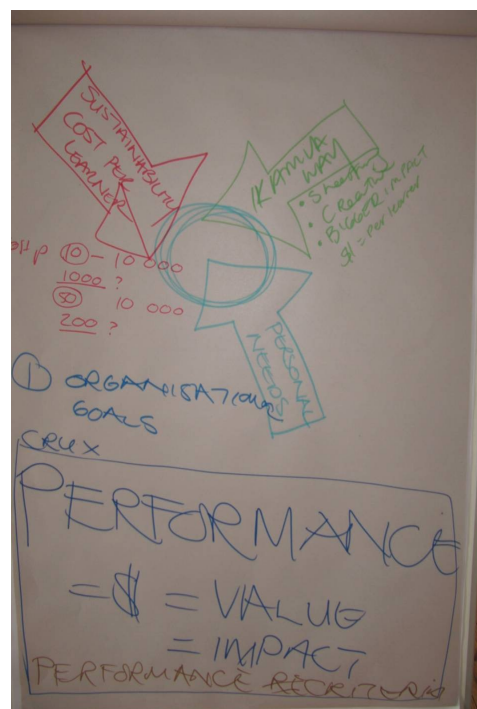 SUSTAINABILITY
COST PER
LEARNER
IKAMVA
WAY
• Smarter
• Creative
• BIGGER IMPACT
$/ = per learner
10 – 10 000
1000 ?
50 10 000
200 ?
PERSONAL
NEEDS
① ORGANISATIONAL
GOALS
CRUX
PERFORMANCE
= $ = VALUE
= IMPACT
PERFORMANCE